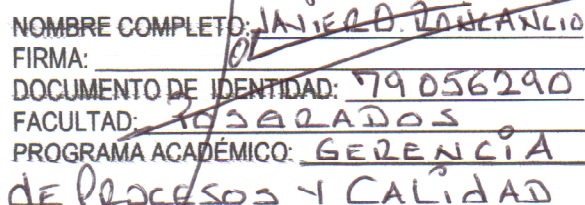 NOMBRE COMPLETO: JAVIER O. RONCANCIO
FIRMA:
DOCUMENTO DE IDENTIDAD: 79056290
FACULTAD: POSGRADOS
PROGRAMA ACADÉMICO: GERENCIA
DE PROCESOS Y CALIDAD